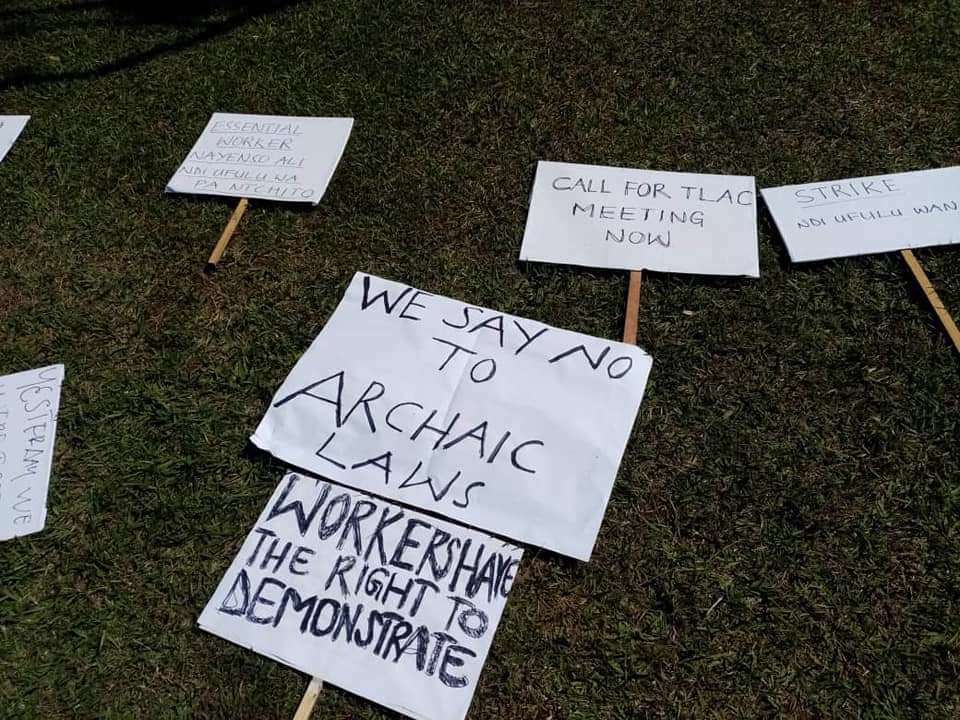 ESSENTIAL
WORKER
NAYENSO ALI
NDI UFULU WA
PA NTCHITO
CALL FOR TLAC
MEETING
NOW
STRIKE
NDI UFULU WAN
WE SAY NO
TO
ARCHAIC
LAWS
WORKERS HAVE
THE RIGHT TO
DEMONSTRATE